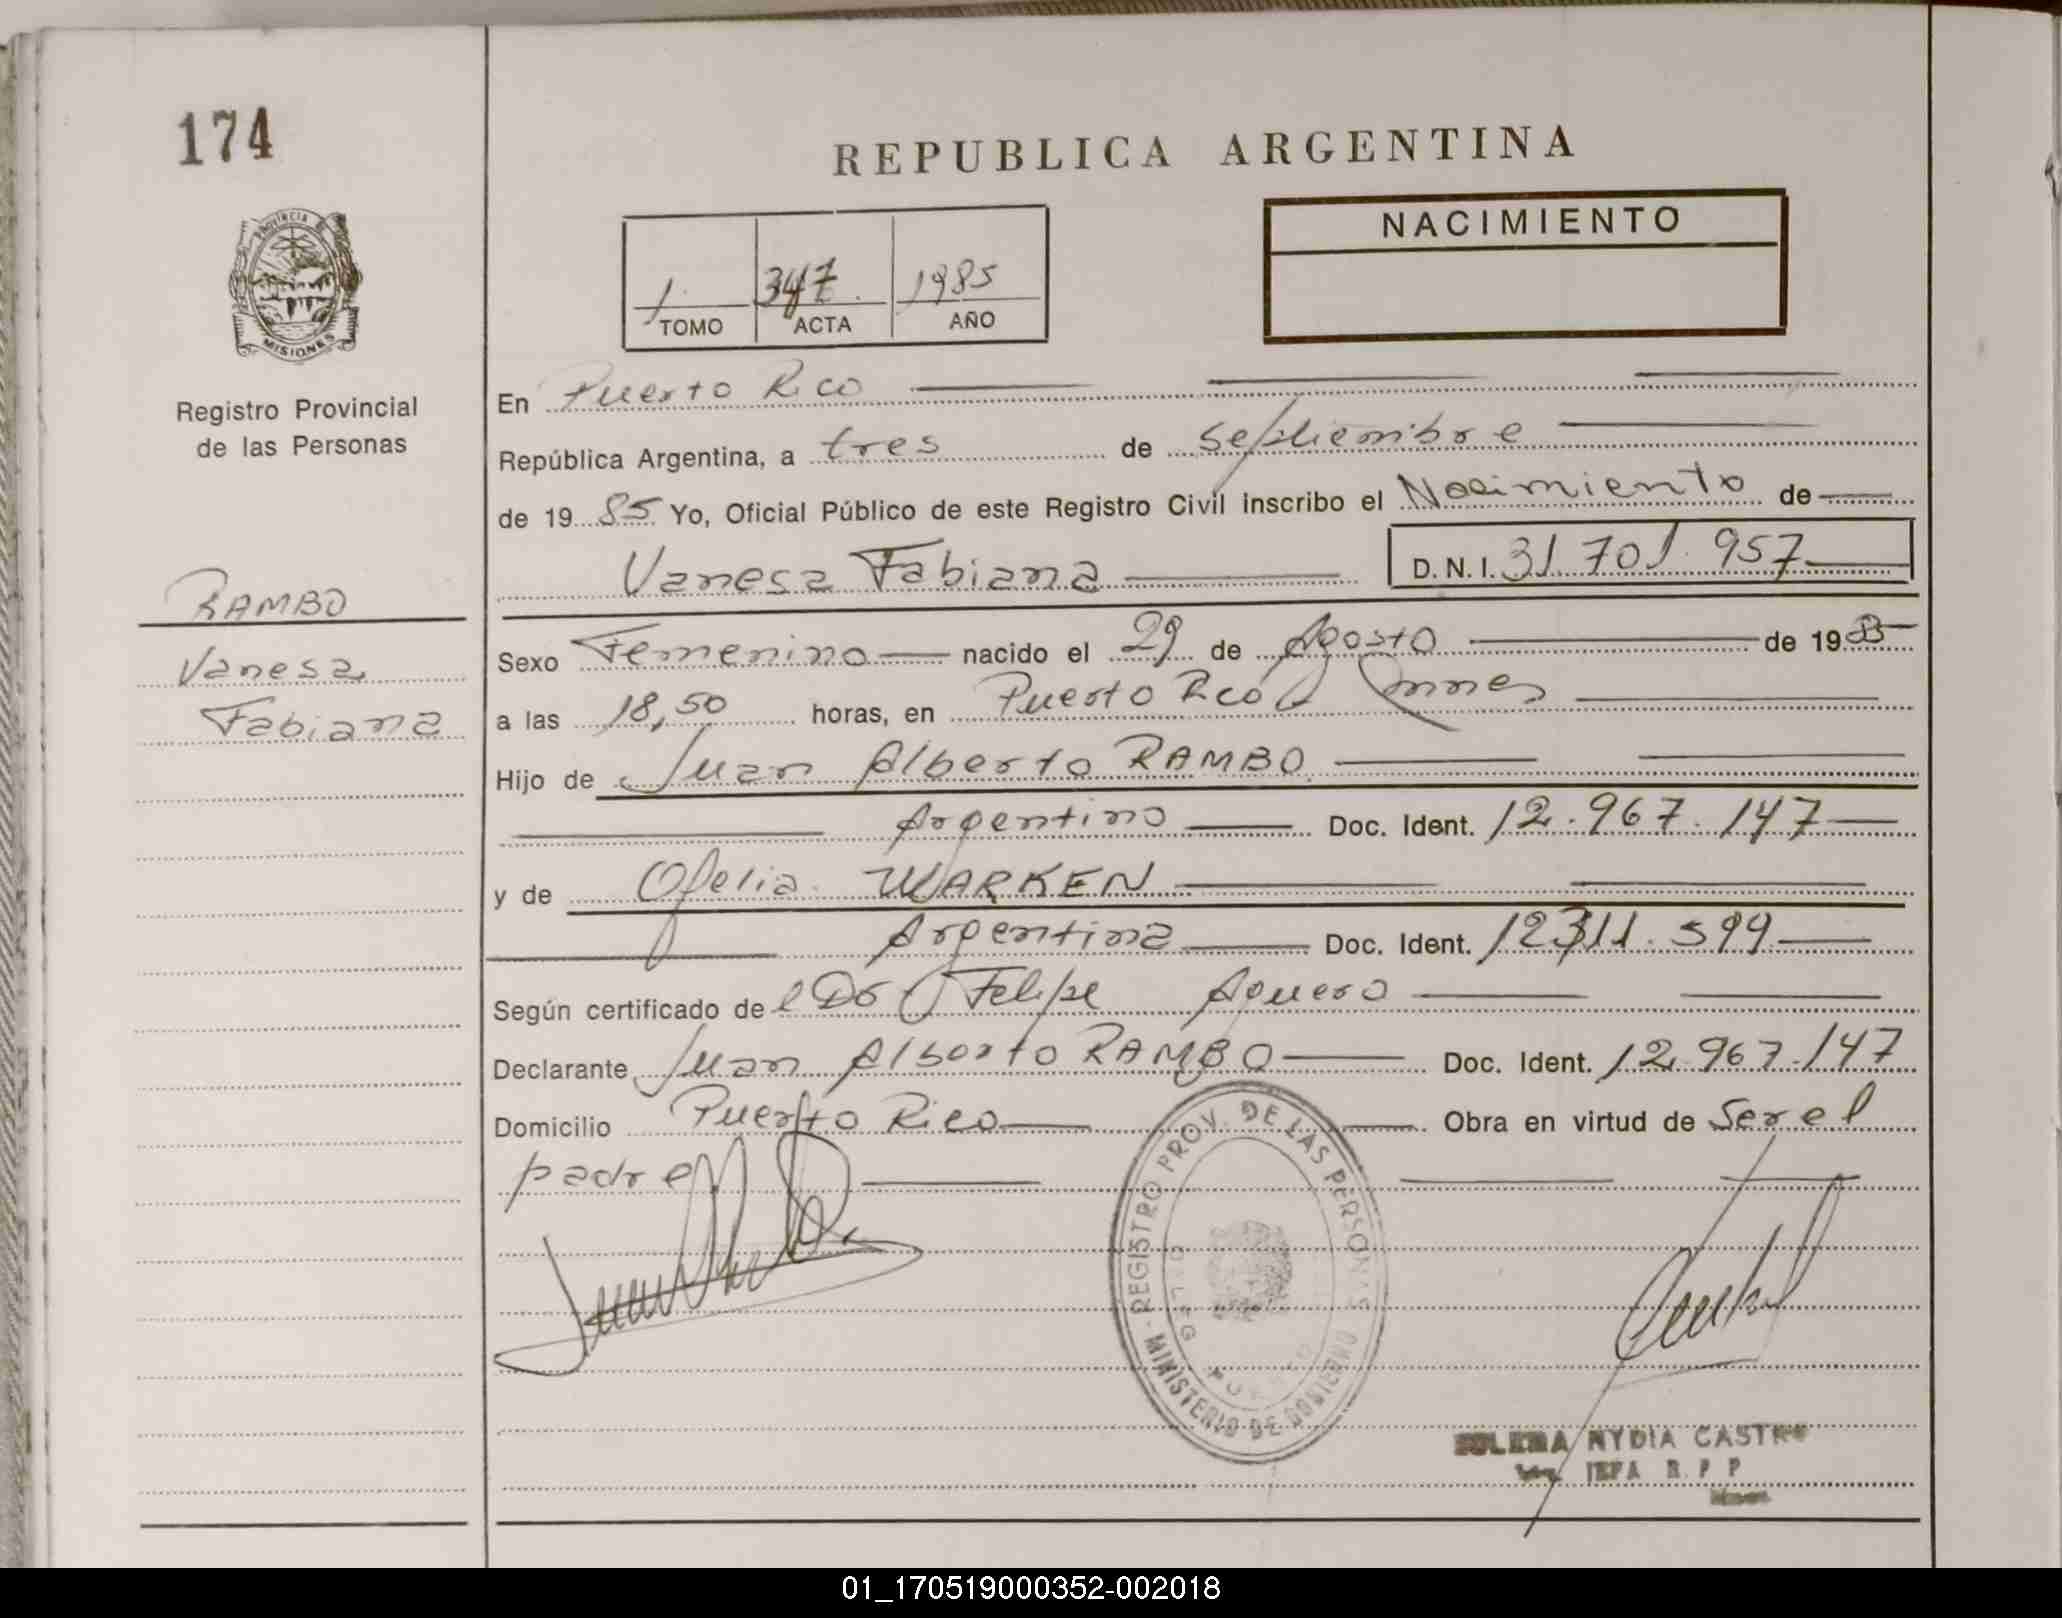 174
REPUBLICA ARGENTINA
PROVINCIA DE
MISIONES
Registro Provincial
de las Personas
NACIMIENTO
1 347 1985
TOMO ACTA AÑO
En Puerto Rico
República Argentina, a tres de septiembre
de 19 85 Yo, Oficial Público de este Registro Civil inscribo el Nacimiento de
Vanesa Fabiana D.N.I. 31.701.957
RAMBO
Vanesa
Fabiana
Sexo Femenino nacido el 29 de Agosto de 19 85
a las 18,50 horas, en Puerto Rico
Hijo de Juan Alberto RAMBO
Argentino Doc. Ident. 12.967.147
y de Ofelia WARKEN
Argentina Doc. Ident. 12311.599
Según certificado de l Dr Felipe Aguero
Declarante Juan Alberto RAMBO Doc. Ident. 12.967.147
Domicilio Puerto Rico Obra en virtud de ser el
padre
REGISTRO PROV. DE LAS PERSONAS
MINISTERIO DE GOBIERNO
NYDIA CASTRO
JEFA R.P.P
01_170519000352-002018